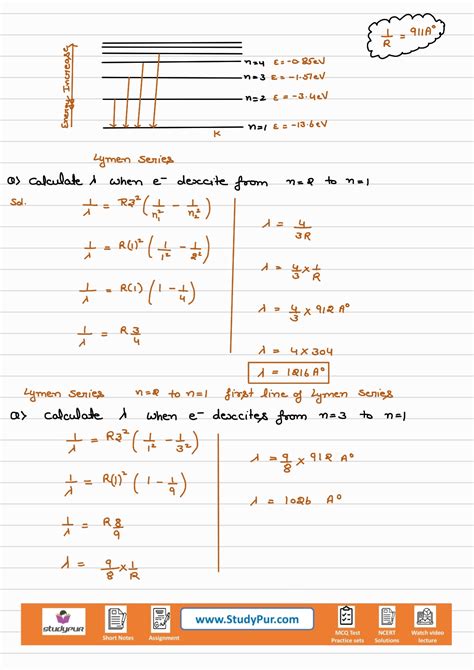 1/R = 911A°
Energy Increase
n=4 E = -0.85eV
n=3 E = -1.51eV
n=2 E = -3.4eV
n=1 E = -13.6eV
K
Lymen series
Q> Calculate λ when e⁻ dexcite from n=2 to n=1
Sol.
1/λ = RZ² (1/n₁² - 1/n₂²)
1/λ = R(1)² (1/1² - 1/2²)
1/λ = R(1) (1 - 1/4)
1/λ = R 3/4
λ = 4/3R
λ = 4/3 × 1/R
λ = 4/3 × 912 A°
λ = 4 × 304
λ = 1216 A°
Lymen series n=2 to n=1 first line of Lymen series
Q> Calculate λ when e⁻ dexcites from n=3 to n=1
1/λ = RZ² (1/1² - 1/3²)
1/λ = R(1)² (1 - 1/9)
1/λ = R 8/9
λ = 9/8 × 1/R
λ = 9/8 × 912 A°
λ = 1026 A°
studypur
Short Notes
Assignment
www.StudyPur.com
MCQ Test
Practice sets
NCERT
Solutions
Watch video
lecture